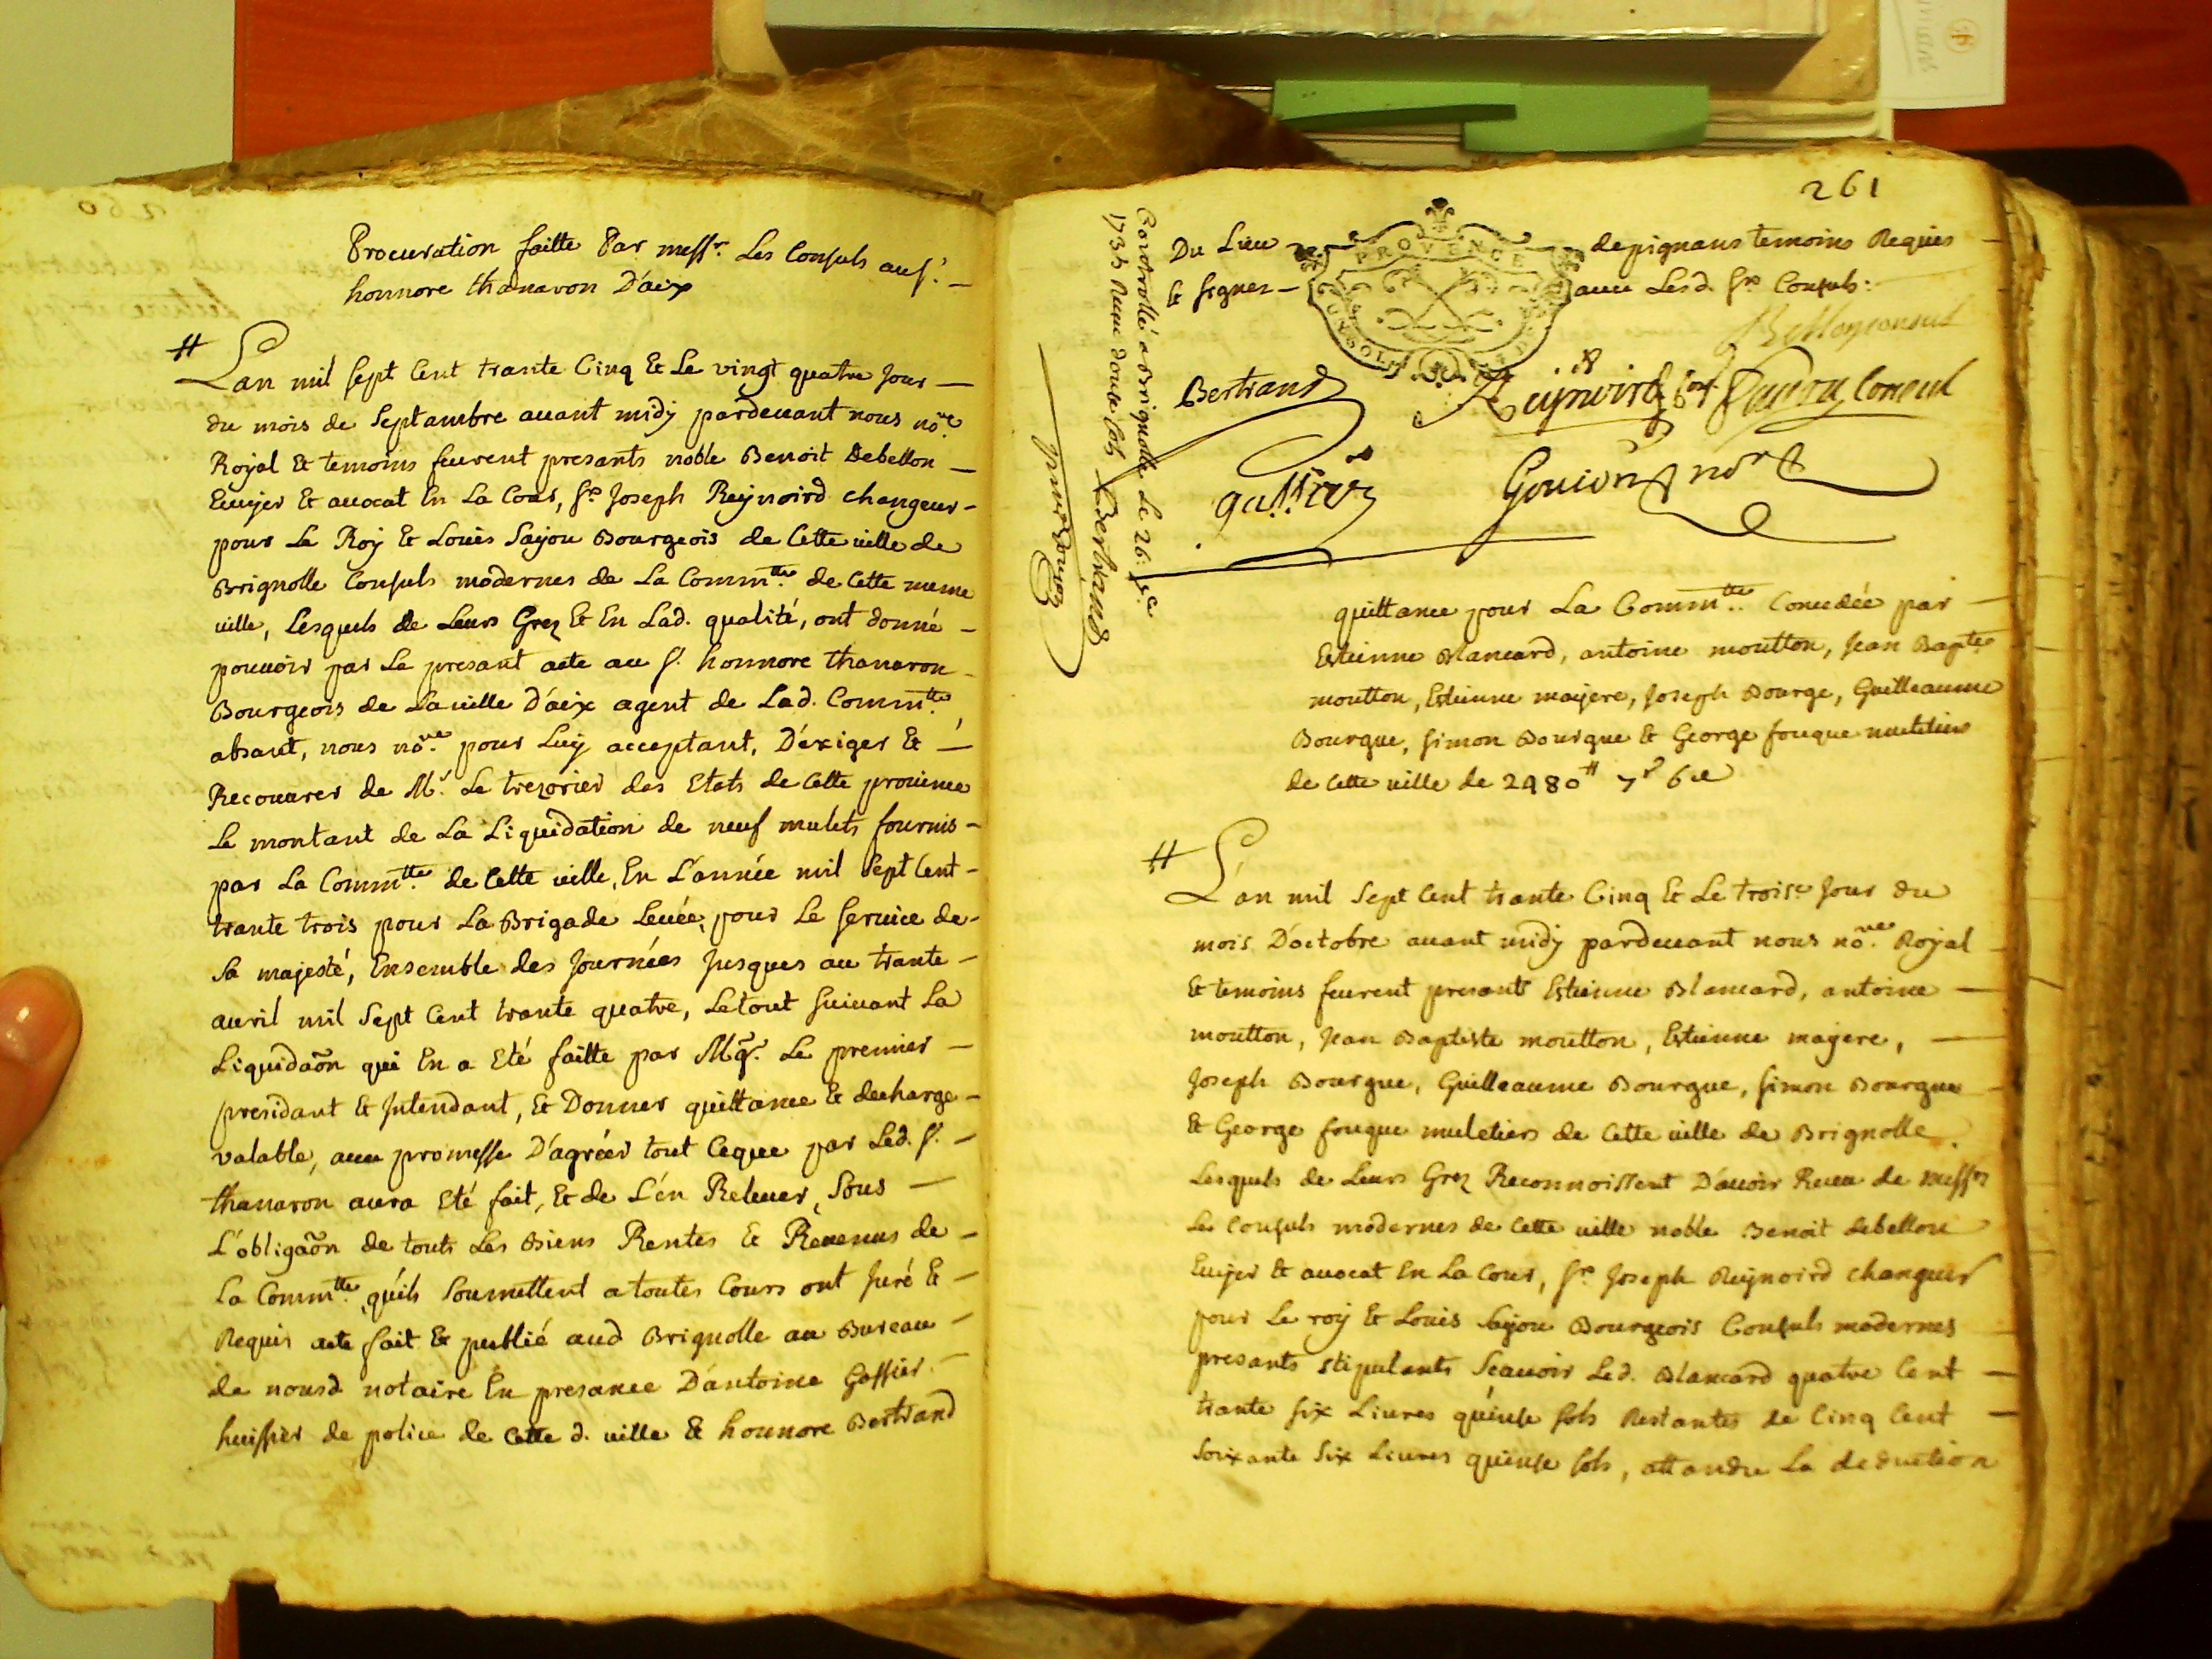 Procuration faitte Par messrs. Les Consuls au sr.
honnore thanaron D'aix
Lan mil sept Cent trante Cinq Et Le vingt quatre Jour
du mois de Septambre auant midy pardeuant nous nore.
Royal Et temoins feurent presants noble Benoit Debellon
Ecuyer Et auocat En La Cour, sr. Joseph Reynoird changeur
pour Le Roy Et Louis Sajou Bourgeois de Cette uille de
Brignolle Consuls modernes de La Commtté. de Cette meme
uille, Lesquels de Leurs Grez Et En Lad. qualité, ont donné
pouuoir par Le presant acte au sr. honnore thanaron
Bourgeois de La uille D'aix agent de Lad. Commtté.
absant, nous nore. pour Luy acceptant, D'exiger Et
Recouurer de Mr. Le trezorier des Etats de Cette prouince
Le montant de La Liquidation de neuf mulets fournis
par La Commtté. de Cette uille, En L'année mil Sept Cent
trante trois pour La Brigade Leuée, pour Le seruice de
Sa majesté, Ensemble des Journées Jusques au trante
auril mil Sept Cent trante quatre, Le tout suiuant La
Liquidaõn qui En a Eté faitte par Mgr. Le premier
presidant Et Intendant, Et Donner quittance Et decharge
valable, auec promesse D'agréer tout Ceque par Led. sr.
thanaron aura Eté fait, Et de L'én Releuer, Sous
L'obligaõn de touts Les Biens Rentes Et Reuenus de
La Commtté. qu'ils Soumettent a toutes Cours ont Juré Et
Requis acte fait Et publié aud Brignolle au Bureau
de nousd notaire En presance D'antoine Gassier
huissier de police de Cette d. uille & honnore Bertrand
261
Du Lieu de pignans temoins Requis
Et signes auec Lesd. srs. Consuls:
PROVENCE
Controllé a Brignolle Le 26: 7e.
1735 Receu douze sols Bertrand
Bellon consul
Bertrand Reynoird Consul
gassier Gouion nore
quittance pour La Commtté. Concedée par
Estienne Blancard, antoine moutton, Jean Bapte
moutton, Estienne mayere, Joseph Bourge, Guilleaume
Bourgue, Simon Bourgue Et George fouque muletiers
de Cette uille de 2980# 7s 6d
L'an mil Sept Cent trante Cinq Et Le troise. Jour du
mois D'octobre auant midy pardeuant nous nore. Royal
Et temoins feurent presants Estienne Blancard, antoine
moutton, Jean Baptiste moutton, Estienne mayere,
Joseph Bourgue, Guilleaume Bourgue, Simon Bourgue
Et George fouque muletiers de Cette uille de Brignolle.
Lesquels de Leurs Grez Reconnoissent D'auoir Receu de messrs
Les Consuls modernes de Cette uille noble Benoit debellon
Ecuyer Et auocat En La Cour, sr. Joseph Reynoird changeur
pour Le roy Et Louis Sajou Bourgeois Consuls modernes
presants stipulants Scauoir Led. Blancard quatre Cent
trante six Liures quinse sols Restantes de Cinq Cent
soixante Six Liures quinse sols, attandu La deduction